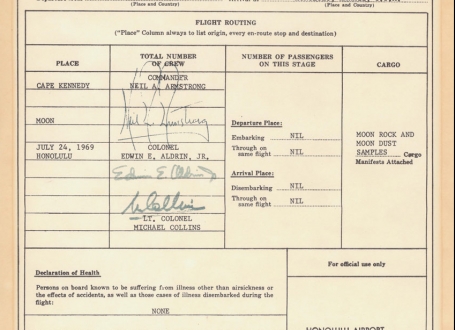 (Place and Country)
(Place and Country)
FLIGHT ROUTING
("Place" Column always to list origin, every en-route stop and destination)
PLACE
TOTAL NUMBER OF CREW
NUMBER OF PASSENGERS ON THIS STAGE
CARGO
CAPE KENNEDY
COMMANDER
NEIL A. ARMSTRONG
MOON
Neil A. Armstrong
JULY 24, 1969
HONOLULU
COLONEL
EDWIN E. ALDRIN, JR.
Edwin E. Aldrin
M Collins
LT. COLONEL
MICHAEL COLLINS
Departure Place:
Embarking NIL
Through on same flight NIL
Arrival Place:
Disembarking NIL
Through on same flight NIL
MOON ROCK AND
MOON DUST
SAMPLES Cargo
Manifests Attached
Declaration of Health
Persons on board known to be suffering from illness other than airsickness or
the effects of accidents, as well as those cases of illness disembarked during the
flight:
NONE
For official use only
HONOLULU AIRPORT